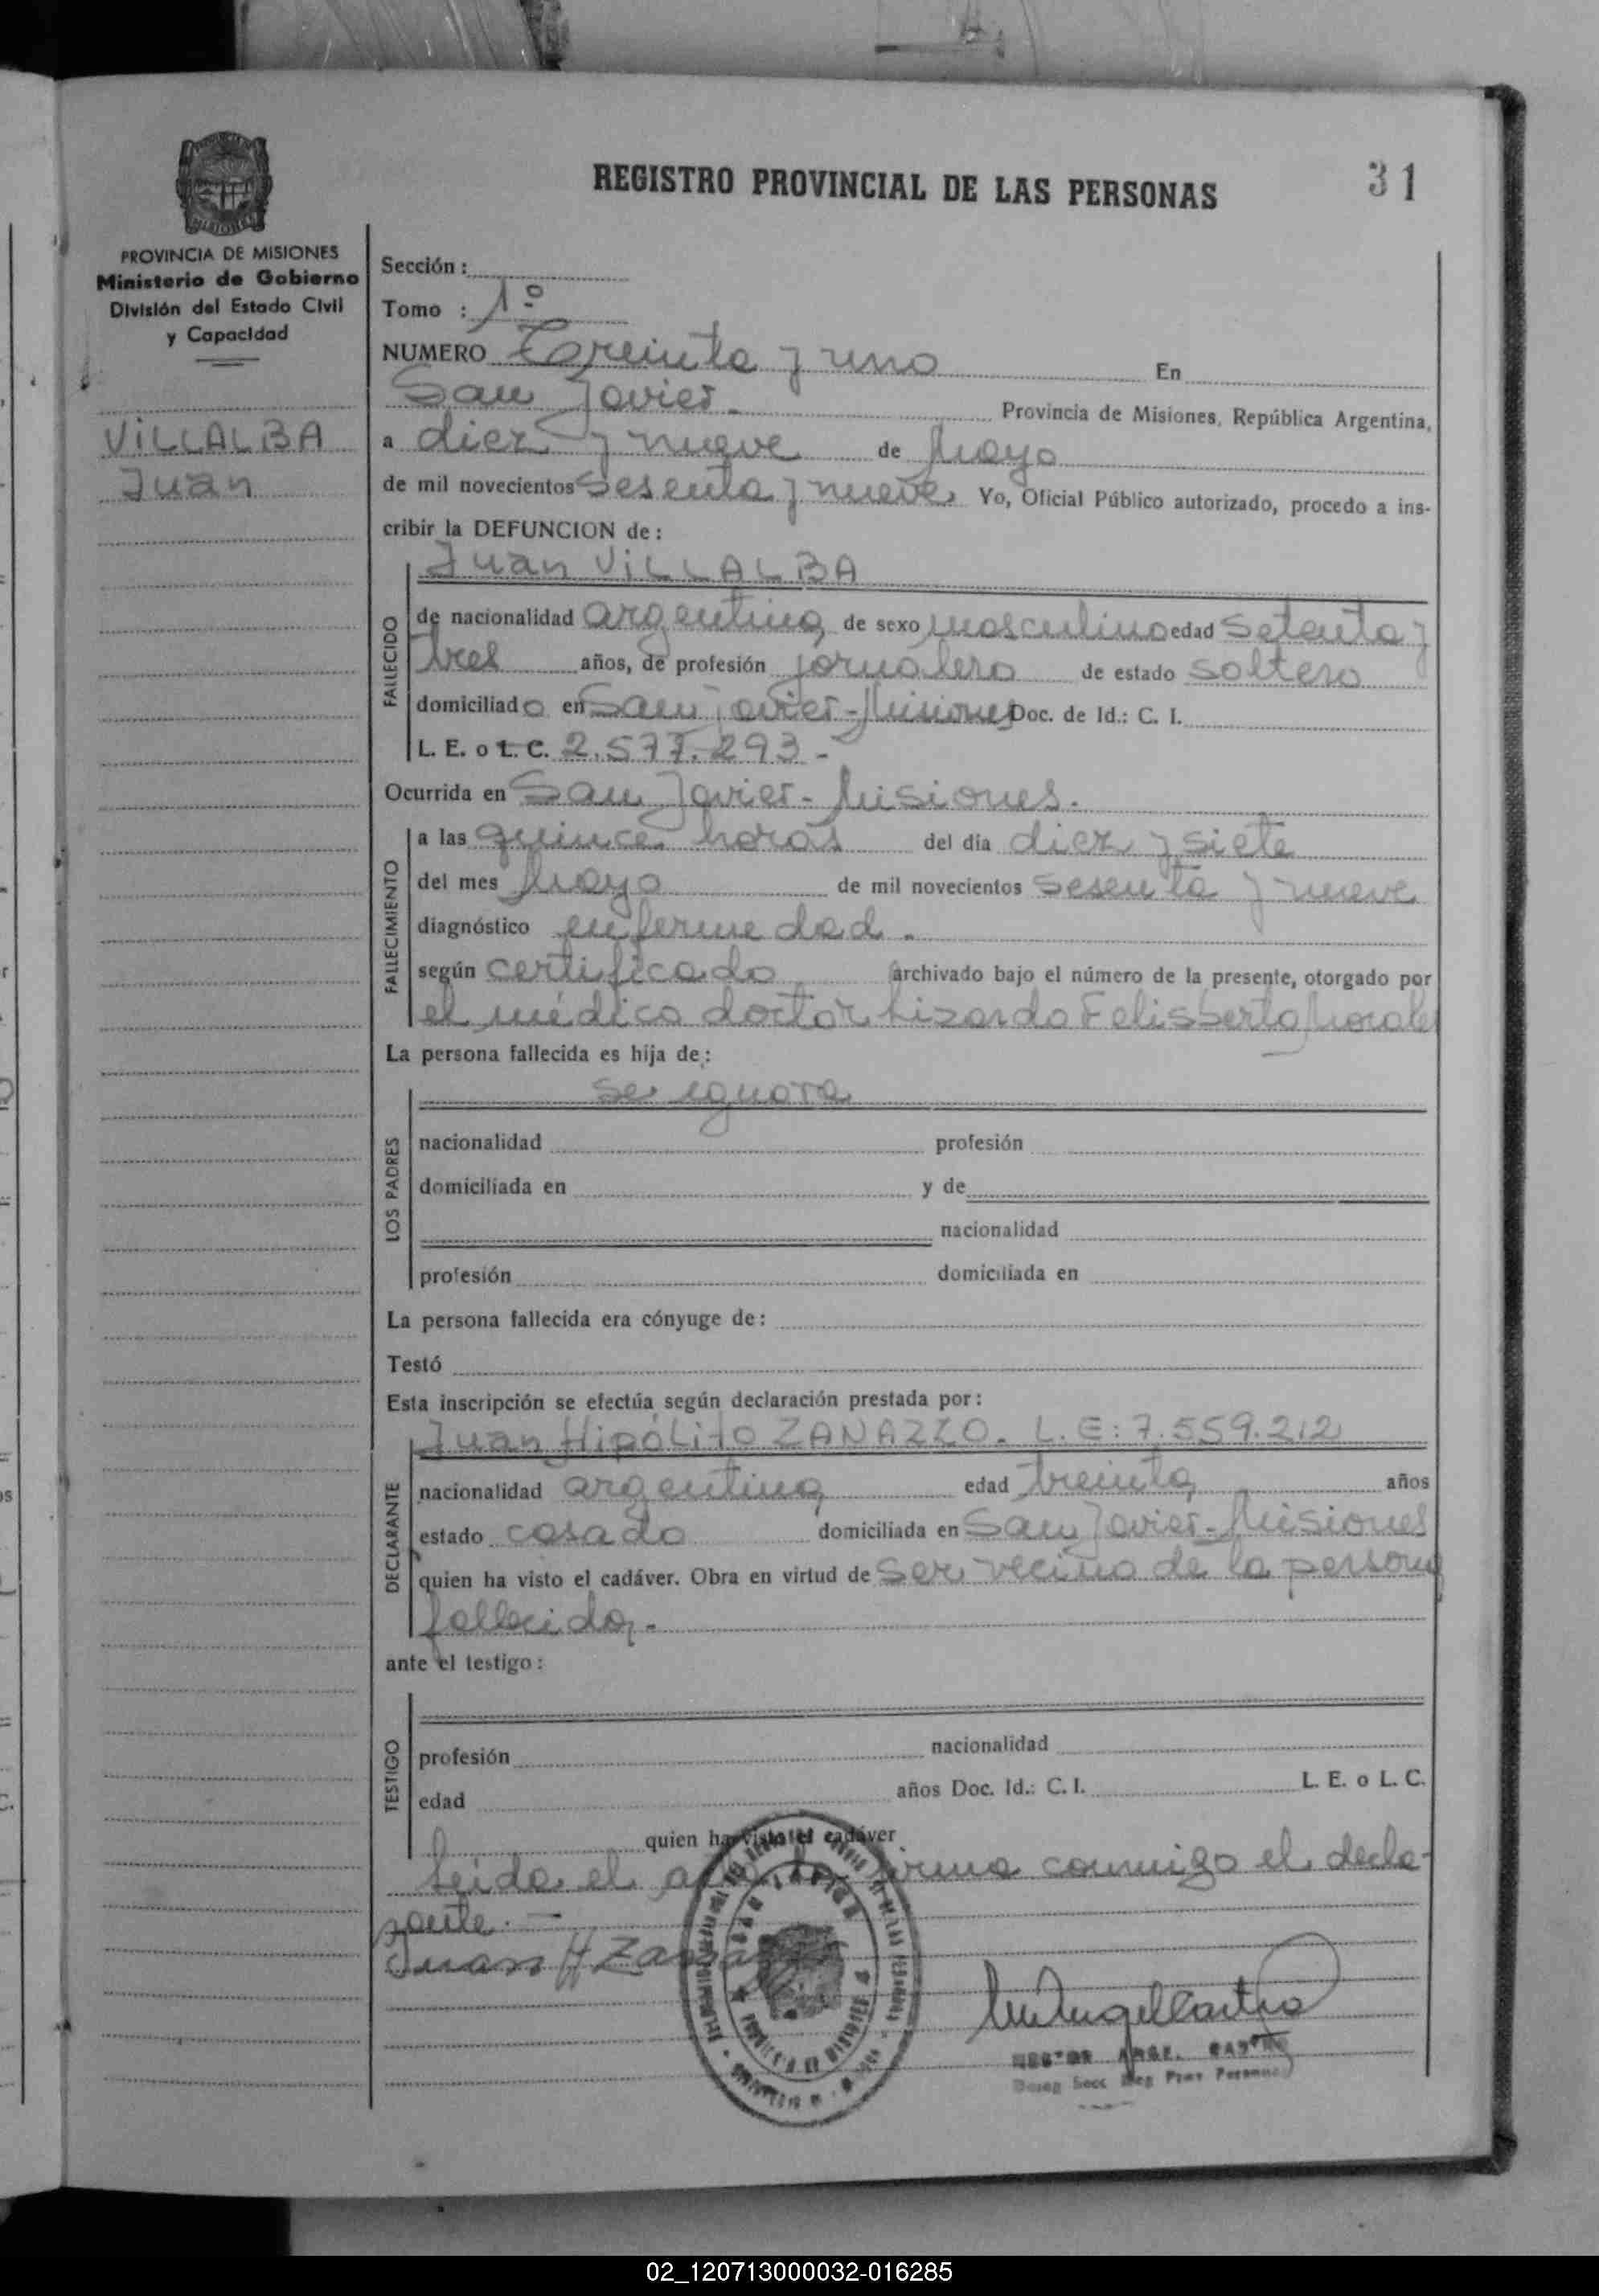 REGISTRO PROVINCIAL DE LAS PERSONAS
31
PROVINCIA DE MISIONES
Ministerio de Gobierno
División del Estado Civil
y Capacidad
VILLALBA
Juan
Sección :
Tomo : 1º
NUMERO Treinta y uno En
San Javier. Provincia de Misiones, República Argentina,
a diez y nueve de Mayo
de mil novecientos sesenta y nueve. Yo, Oficial Público autorizado, procedo a ins-
cribir la DEFUNCION de :
Juan VILLALBA
FALLECIDO
de nacionalidad argentina de sexo masculino edad setenta y
tres años, de profesión jornalero de estado soltero
domiciliado en San Javier-Misiones Doc. de Id.: C. I.
L. E. o L. C. 2.577.293-
Ocurrida en San Javier-Misiones.
FALLECIMIENTO
a las quince horas del día diez y siete
del mes Mayo de mil novecientos sesenta y nueve
diagnóstico enfermedad.
según certificado archivado bajo el número de la presente, otorgado por
el médico doctor Lizardo Felisberto Morales
La persona fallecida es hija de :
LOS PADRES
se ignora
nacionalidad profesión
domiciliada en y de
nacionalidad
profesión domiciliada en
La persona fallecida era cónyuge de :
Testó
Esta inscripción se efectúa según declaración prestada por :
DECLARANTE
Juan Hipólito ZANAZZO. L.E: 7.559.212
nacionalidad argentina edad treinta años
estado casado domiciliada en San Javier-Misiones
quien ha visto el cadáver. Obra en virtud de ser vecino de la persona
fallecida.
ante el testigo :
TESTIGO
profesión nacionalidad
edad años Doc. Id.: C. I. L. E. o L. C.
quien ha visto el cadáver
Leída el acta la firma conmigo el decla-
rante.-
Juan H Zanazzo
SAN JAVIER
PROVINCIA DE MISIONES
CASTRO
02_120713000032-016285